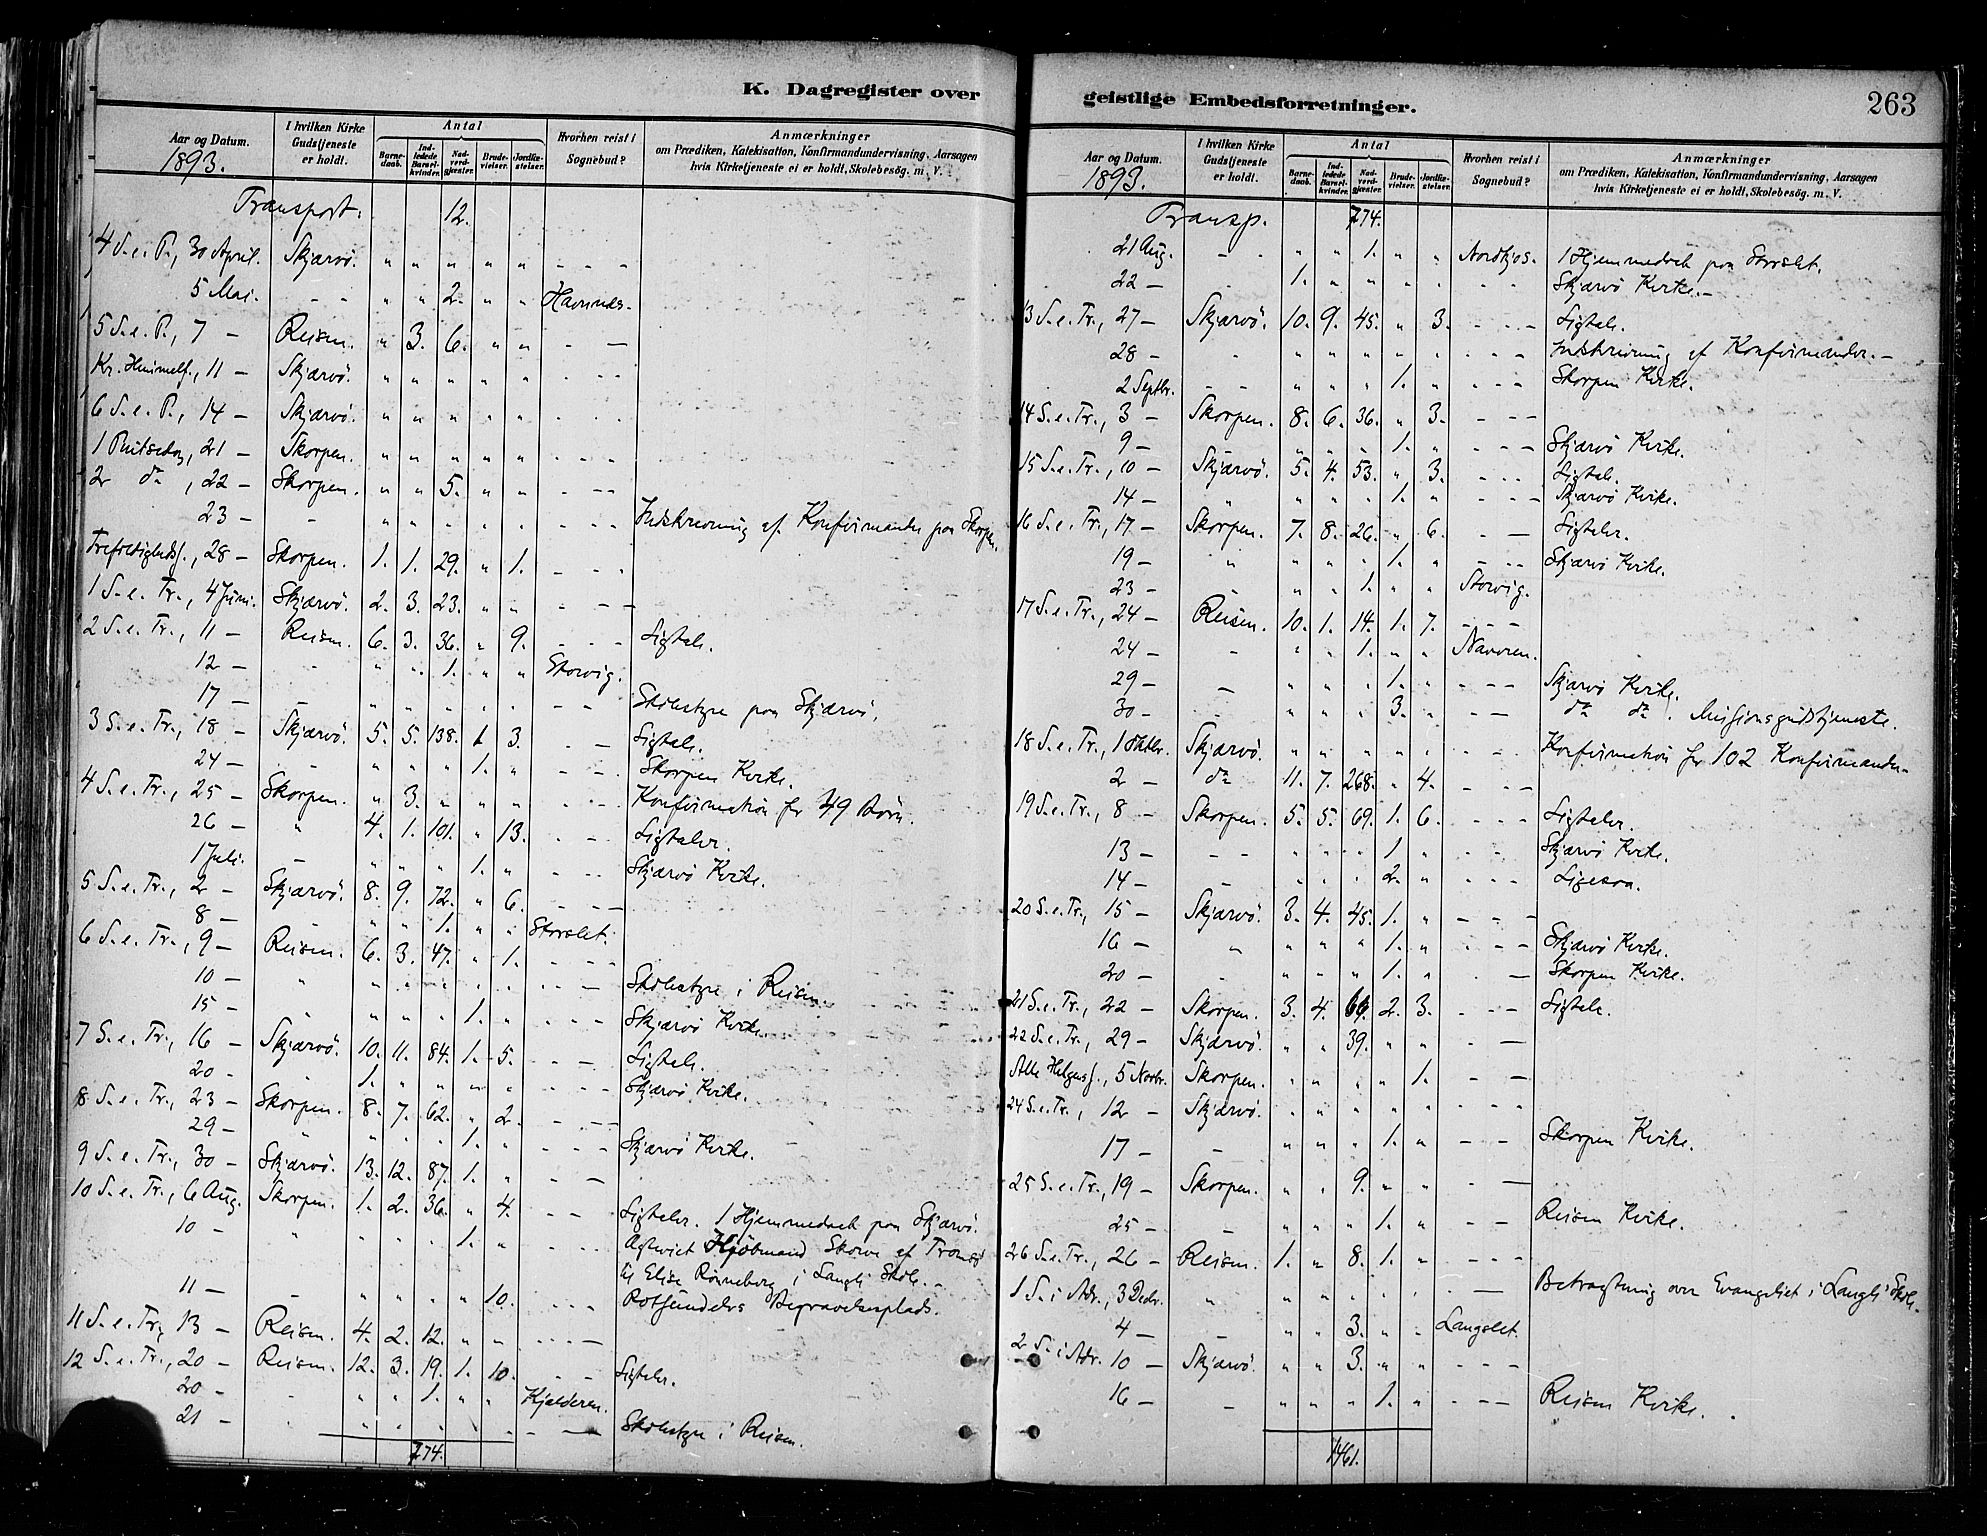 K. Dagregister over
Aar og Datum. | I hvilken Kirke Gudstjeneste er holdt. | Antal | Barnedaab. | Indledede Barselkvinder. | Nadverdgjæster. | Brudevielser. | Jordfæstelser. | Hvorhen reist i Sognebud? | Anmærkninger om Prædiken, Katekisation, Konfirmandundervisning, Aarsagen hvis Kirketjeneste ei er holdt, Skolebesøg. m. V.
1893.
Transport. 12.
4 S. e. P., 30 April. Skjærvö. " " " " " - - -
5 Mai. - - " " 2. " " Havnnes.
5 S. e. P., 7 - Reisen. " 3. 6. " " - -
Kr. Himmelf., 11 - Skjærvö. " " " " " - - -
6 S. e. P., 14 - Skjærvö. " " " " " - - -
1 Pintsedag, 21 - Skorpen. " " " " " - - -
2 do, 22 - Skorpen. " " 5. " " - - -
23 - - " " " " " - - - Indskrivning af Konfirmander paa Skorpen.
Trefoldighedsf., 28 - Skorpen. 1. 1. 29. " 1. - - -
1 S. e. Tr., 4 Juni. Skjærvö. 2. 3. 23. " " - - -
2 S. e. Tr., 11 - Reisen. 6. 3. 36. " 9. - - - Ligtale.
12 - - " " 1. " " Storvig.
17 - - " " " " " - - Skolestyre paa Skjærvö.
3 S. e. Tr., 18 - Skjærvö. 5. 5. 138. 1. 3. - - Ligtale.
24 - - " " " 1. " - - Skorpen Kirke.
4 S. e. Tr., 25 - Skorpen. " 3. " " " - - - Konfirmation for 49 Börn.
26 - " 4. 1. 101. " 13. - - Ligtaler.
1 Juli. - " " " 1. " - - Skjærvö Kirke.
5 S. e. Tr., 2 - Skjærvö. 8. 9. 72. " 6. - - -
8 - - " " 1. " " Storslet.
6 S. e. Tr., 9 - Reisen. 6. 3. 47. " 1. - - -
10 - " " " " " " - - - Skolestyre i Reisen.
15 - " " " " 1. " - - - Skjærvö Kirke.
7 S. e. Tr., 16 - Skjærvö. 10. 11. 84. 1. 5. - - - Ligtale.
20 - - 1. " " " " - - - Skjærvö Kirke.
8 S. e. Tr., 23 - Skorpen. 8. 7. 62. " 2. - - -
29 - " " " " 1. " - - - Skjærvö Kirke.
9 S. e. Tr., 30 - Skjærvö. 13. 12. 87. 1. " - - -
10 S. e. Tr., 6 Aug. Skorpen. 1. 2. 36. " 4. - - - Ligtaler. 1 Hjemmedaab paa Skjærvö.
10 - " " " " 1. " - - - Agtviet Kjöbmand af Tromsö
til Elise Rönneberg i Langli Skole. -
11 - - " " " " 10. - - - Rotsundelvs Begravelsesplads.
11 S. e. Tr., 13 - Reisen. 4. 2. 12. " " - - -
12 S. e. Tr., 20 - Reisen. 12. 3. 19. 1. 10. - - Ligtaler.
20 - - " " 1. " " Kjelderen.
21 - - " " " " " - - Skolestyre i Reisen.
774.
geistlige Embedsforretninger. 263
Aar og Datum. | I hvilken Kirke Gudstjeneste er holdt. | Antal | Barnedaab. | Indledede Barselkvinder. | Nadverdgjæster. | Brudevielser. | Jordfæstelser. | Hvorhen reist i Sognebud? | Anmærkninger om Prædiken, Katekisation, Konfirmandundervisning, Aarsagen hvis Kirketjeneste ei er holdt, Skolebesøg. m. V.
1893.
Transp. 774.
21 Aug. - - " " 1. " " Nordkjos. 1 Hjemmedaab paa Storslet.
22 - - 1. " " " " - - - Skjærvö Kirke. -
13 S. e. Tr., 27 - Skjærvö. 10. 9. 45. " 3. - - - Ligtale.
28 - - " " " " " - - - Indskrivning af Konfirmander. -
2 Septbr. - - " " " 1. " - - - Skorpen Kirke.
14 S. e. Tr., 3 - Skorpen. 8. 6. 36. " 3. - - -
9 - " " " 1. " - - - Skjærvö Kirke.
15 S. e. Tr., 10 - Skjærvö. 5. 4. 53. " 3. - - - Ligtale.
14 - " " " " 1. " - - - Skjærvö Kirke.
16 S. e. Tr., 17 - Skorpen. 7. 8. 26. " 6. - - Ligtaler.
19 - " " " " 1. " - - - Skjærvö Kirke.
23 - - " " 1. " " Storvig.
17 S. e. Tr., 24 - Reisen. 10. 1. 14. 1. 7. - - -
24 - - " " 1. " " Navoren.
29 - - " " " 1. " - - - Skjærvö Kirke.
30 - - " " " 3. " - - do do. Missionsgudstjeneste.
18 S. e. Tr., 1 Oktbr. Skjærvö. " " " " " - - - Konfirmation for 102 Konfirmander.
2 - do 11. 7. 268. " 4. - - -
19 S. e. Tr., 8 - Skorpen. 5. 5. 69. 1. 6. - - - Ligtaler.
13 - - - " " " 1. " - - - Skjærvö Kirke.
14 - - " " " 2. " - - - Ligesaa.
20 S. e. Tr., 15 - Skjærvö. 3. 4. 45. 1. " - - -
16 - " " " " 1. " - - - Skjærvö Kirke.
20 - - " " " 1. " - - Skorpen Kirke.
21 S. e. Tr., 22 - Skorpen. 3. 4. 2. 3. - - - Ligtale.
22 S. e. Tr., 29 - Skjærvö. " " 39. " " - -
Alle Helgensf., 5 Novbr. Skorpen. " " " " 1. - -
24 S. e. Tr., 12 - Skjærvö. " " " " " - - -
17 - - " " " 1. " - - - Skorpen Kirke.
25 S. e. Tr., 19 - Skorpen. " " 9. " " - -
25 - - " " " 1. " - - Reisen Kirke.
26 S. e. Tr., 26 - Reisen. 1. " 8. 1. " - - -
1 S. i Adv., 3 Decbr. " " " " " " - - Betragtning over Evangeliet i Langli Skole.
4 - - " " 3. " " Langslet.
2 S. i Adv. 10 - Skjærvö. " " 3. " " - - -
16 - - " " " 1. " - - - Reisen Kirke.
1461.